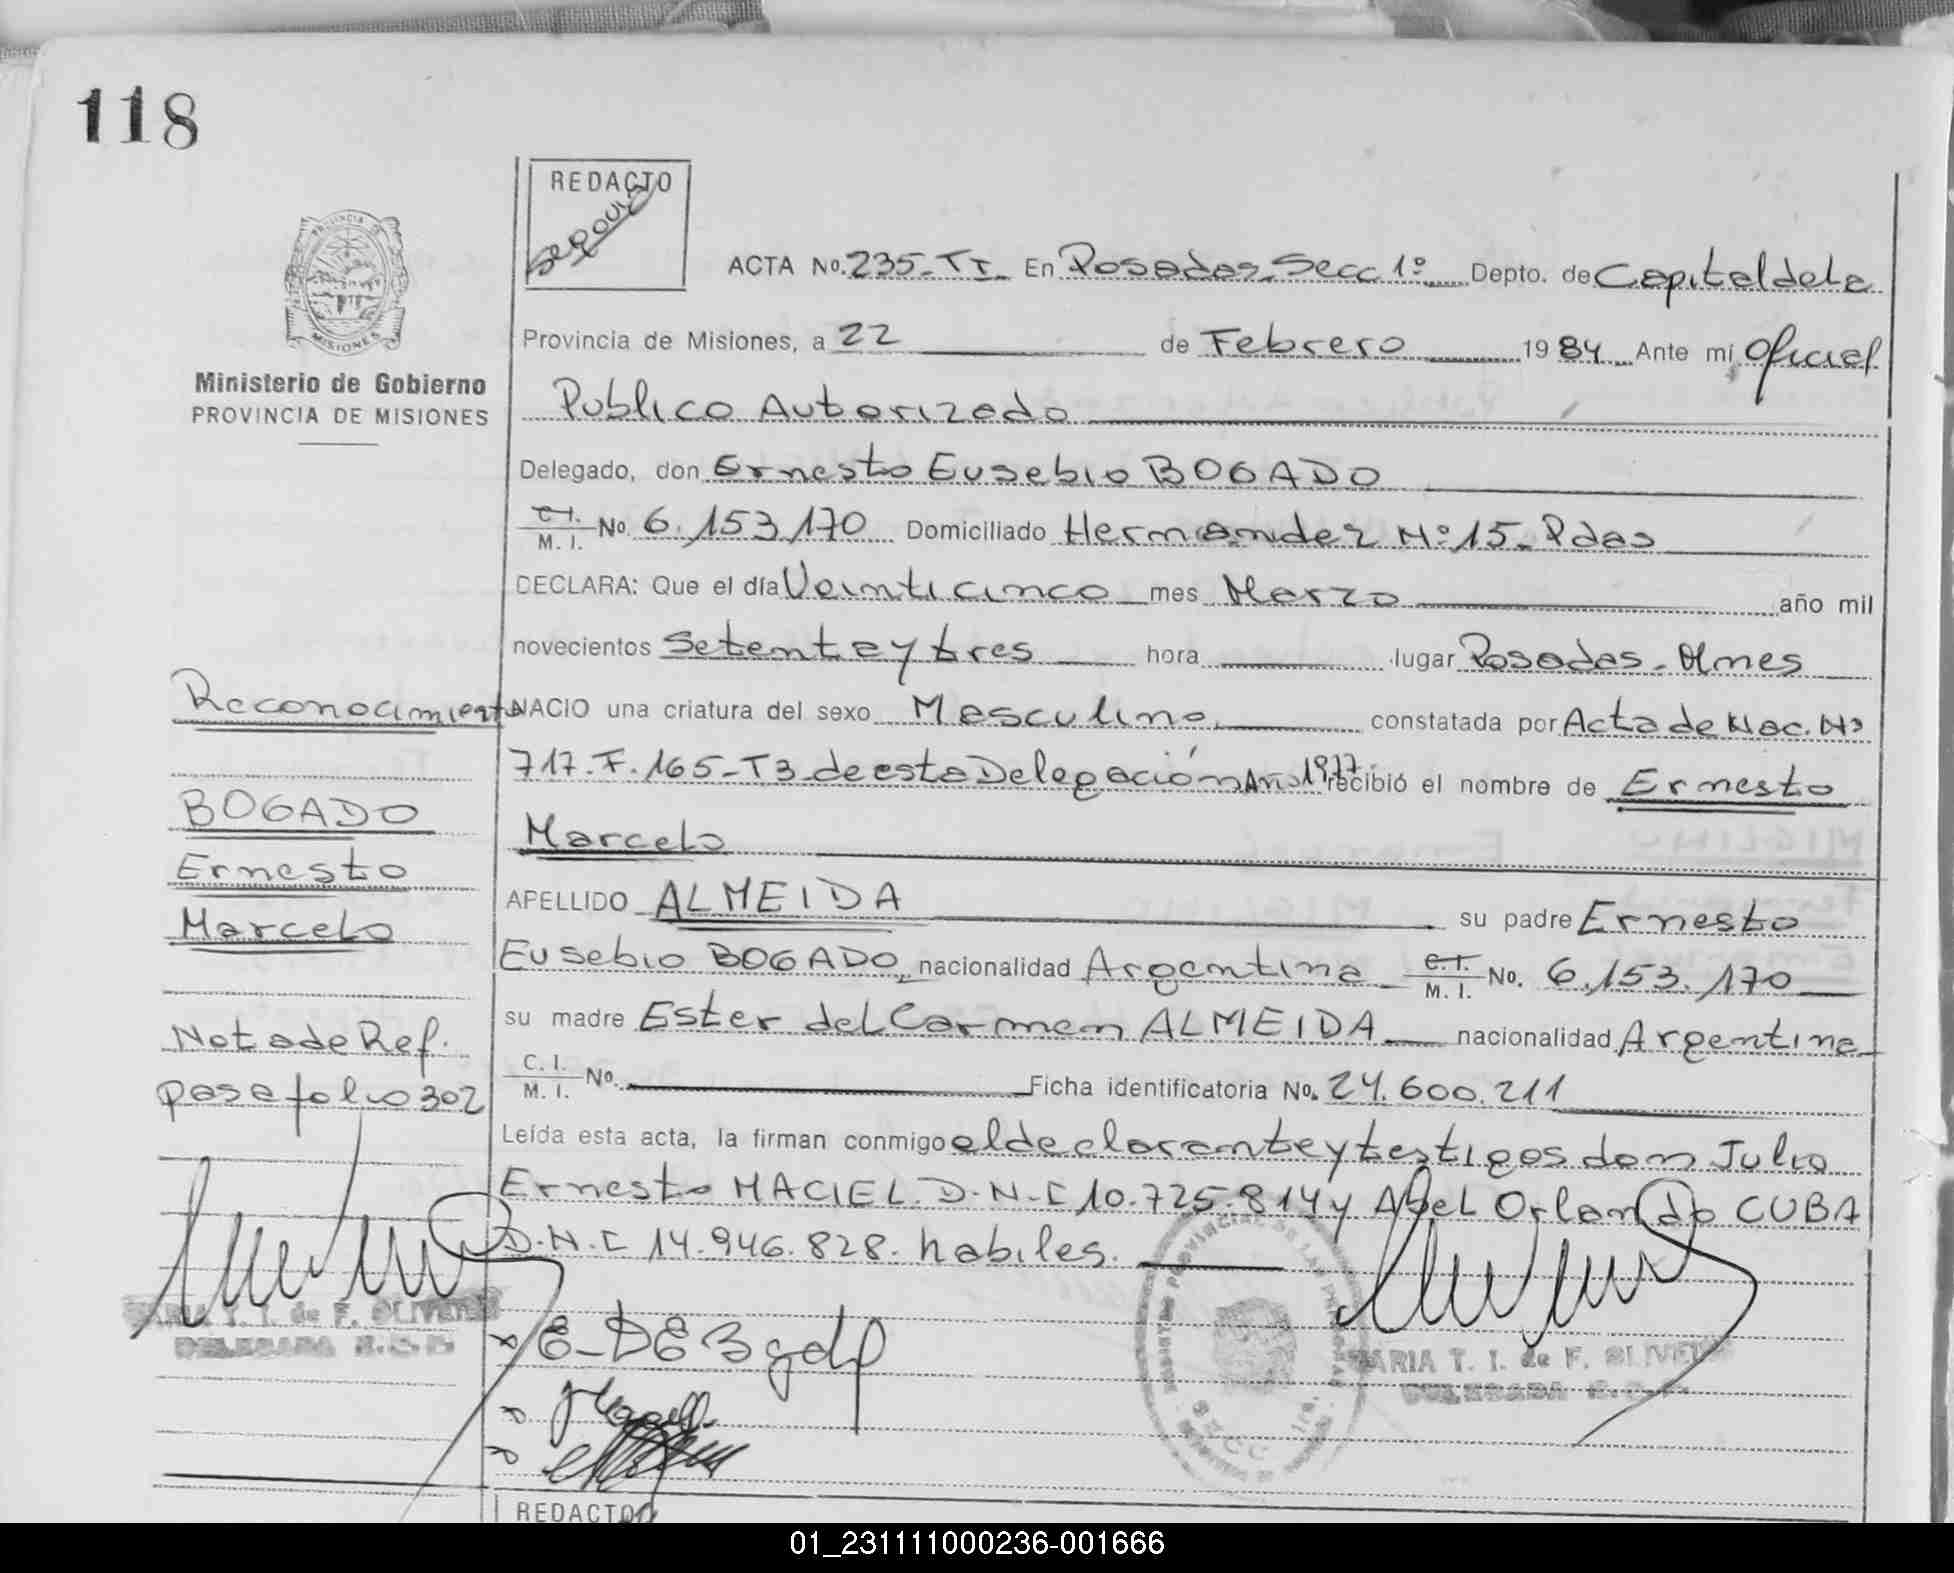 118
REDACTO
ACTA No. 235-TI. En Posadas-Secc 1º Depto. de Capital de la
Provincia de Misiones, a 22 de Febrero 1984 Ante mí Oficial
Ministerio de Gobierno
PROVINCIA DE MISIONES
Publico Autorizado
Delegado, don Ernesto Eusebio BOGADO
C.I. M. I. No. 6.153.170 Domiciliado Hernandez Nº 15-Pdas
DECLARA: Que el día Veinticinco mes Marzo año mil
novecientos Setenta y tres hora lugar Posadas-Mnes
Reconocimiento
NACIO una criatura del sexo Masculino constatada por Acta de Nac. Nº
717.F.165-T3 de esta Delegación Año 1977 recibió el nombre de Ernesto
BOGADO
Marcelo
Ernesto
APELLIDO ALMEIDA su padre Ernesto
Marcelo
Eusebio BOGADO, nacionalidad Argentina C.I. M. I. No. 6.153.170
su madre Ester del Carmen ALMEIDA nacionalidad Argentina
Nota de Ref.
C. I. M. I. No. Ficha identificatoria No. 24.600.211
pasa folio 302
Leída esta acta, la firman conmigo el declarante y testigos don Julio
Ernesto MACIEL. D.N.I 10.725.814 y Abel Orlando CUBA
D.N.I 14.946.828. habiles.
MARIA T. I. de F. OLIVEIRA
DELEGADA
MARIA T. I. de F. OLIVEIRA
DELEGADA
REDACTO
01_231111000236-001666